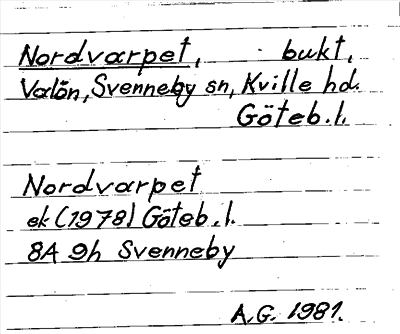 Nordvarpet, bukt,
Valön, Svenneby sn, Kville hd.
Göteb. l.
Nordvarpet
ek (1978) Göteb. l.
8A 9h Svenneby
A.G. 1981.